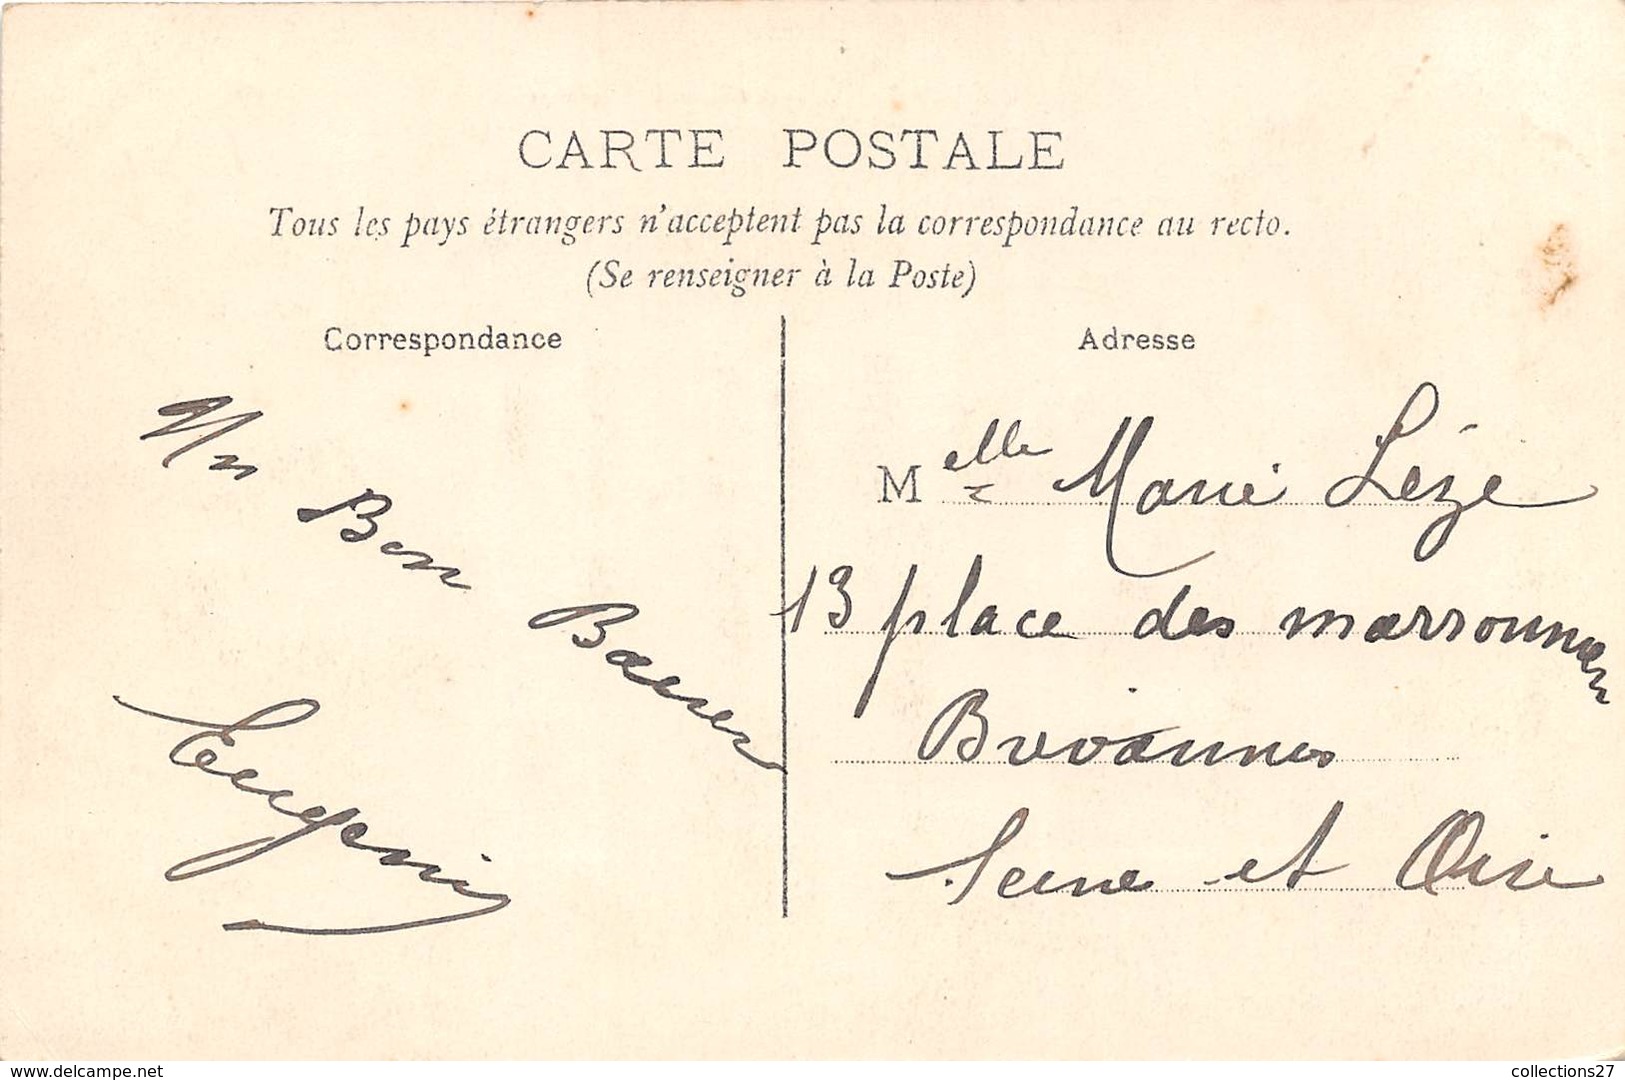 CARTE POSTALE
Tous les pays étrangers n'acceptent pas la correspondance au recto.
(Se renseigner à la Poste)
Correspondance
Adresse
Un Bon Baiser
Eugenie
Melle Marie Léze
13 place des marronnier
Brevannes
Seine et Oise
www.delcampe.net
collections27